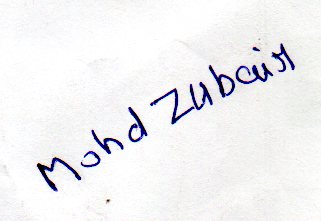 Mohd Zubair